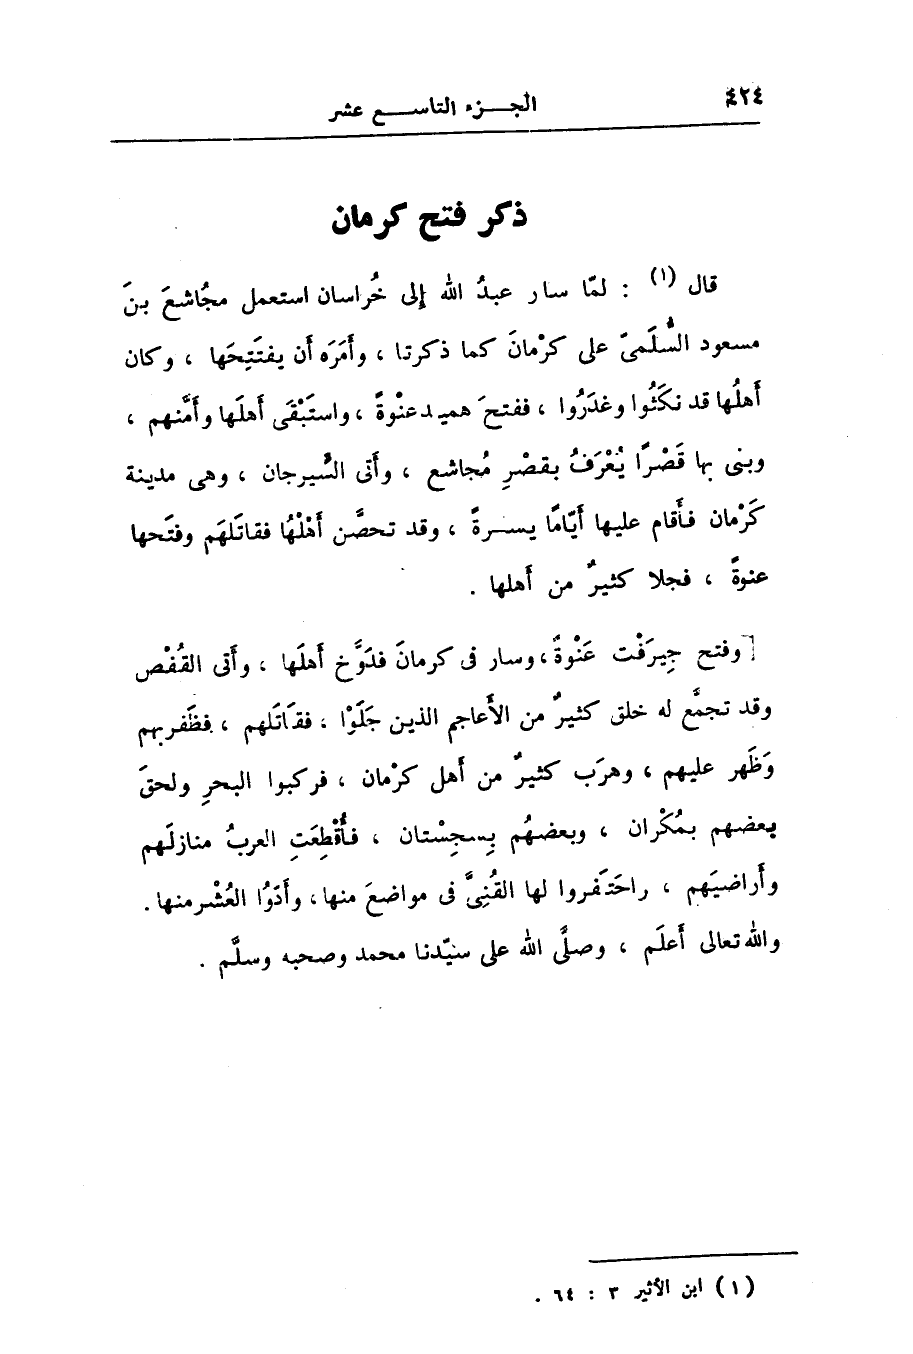 ٤٢٤
الجزء التاسع عشر
ذكر فتح كرمان
قال (١) : لمّا سار عبدُ الله إلى خُراسان استعمل مجُاشعَ بنَ
مسعود السُّلَمىّ على كرْمانَ كما ذكرنا ، وأَمَرَه أن يفتَتِحَها ، وكان
أهلُها قد نكَثُوا وغدَرُوا ، ففتحَ هميد عنْوةً ، واستَبْقَى أَهلَها وأَمَّنهم ،
وبنى بها قَصْرًا يُعْرَفُ بقصْرِ مُجاشع ، وأتى السِّيرجان ، وهى مدينة
كَرْمان فأَقام عليها أَيّامًا يسيرةً ، وقد تحصَّن أَهْلُها فقاتَلهَم وفتَحها
عنوةً ، فجلا كثيرٌ من أَهلها .
[ وفتح جِيرَفْت عَنْوةً ، وسار فى كرمانَ فدَوَّخ أهلَها ، وأتى القُفْص
وقد تجمَّع له خلق كثيرٌ من الأَعاجم الذين جَلَوْا ، فقَاتَلهم ، فظَفر بهم
وَظَهر عليهم ، وهرَب كثيرٌ من أهل كرْمان ، فركبوا البحرِ ولحقَ
بعضهم بمُكْران ، وبعضهُم بِسجِسْتان ، فأُقْطِعَتِ العربُ منازلَهم
وأَراضيَهم ، واحتَفروا لها القُنِىَّ فى مواضعَ منها ، وأَدَّوُا العُشْر منها .
والله تعالى أَعلَم ، وصلَّى الله على سيّدنا محمد وصحبه وسلَّم .
(١) ابن الأثير ٣ : ٦٤ .